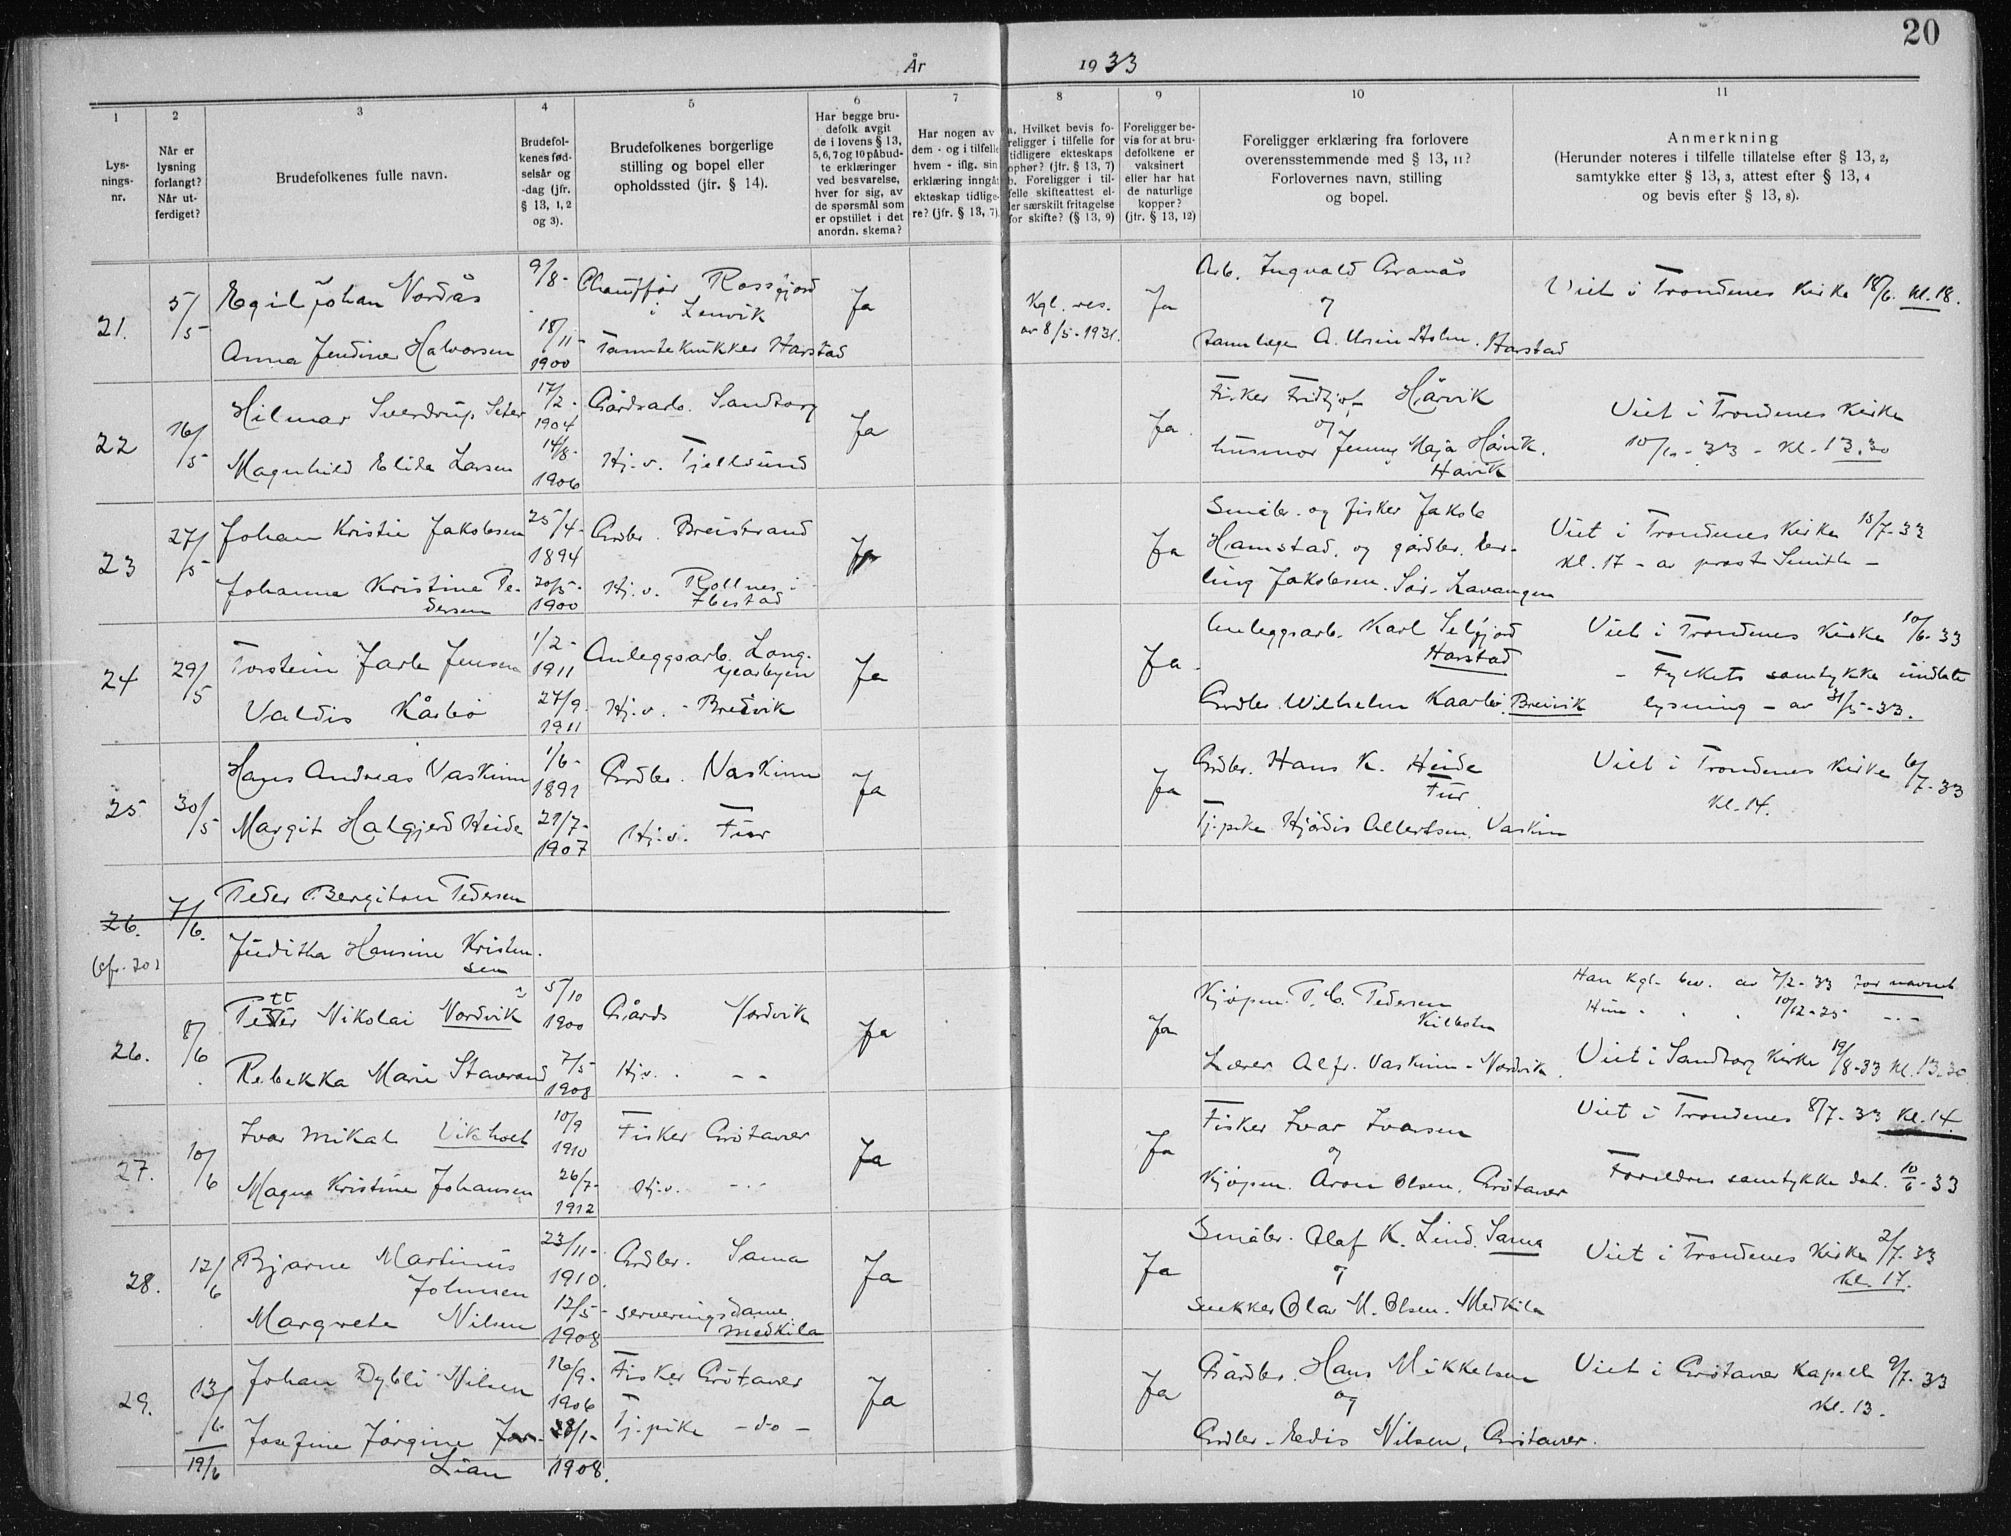 20
År 1933
1
Lys-
nings-
nr.
2
Når er
lysning
forlangt?
Når ut-
ferdiget?
3
Brudefolkenes fulle navn.
4
Brudefol-
kenes fød-
selsår og
-dag (jfr.
§ 13, 1, 2
og 3).
5
Brudefolkenes borgerlige
stilling og bopel eller
opholdssted (jfr. § 14).
6
Har begge bru-
defolk avgit
de i lovens § 13,
5, 6, 7 og 10 påbud-
te erklæringer
ved besvarelse,
hver for sig, av
de spørsmål som
er opstillet i det
anordn. skema?
7
Har nogen av
dem - og i tilfelle
hvem - iflg. sin
erklæring inngåt
ekteskap tidlige-
re? (jfr. § 13, 7).
8
a. Hvilket bevis fo-
religger i tilfelle for
tidligere ekteskaps
ophør? (jfr. § 13, 7)
b. Foreligger i til-
felle skifteattest el-
ler særskilt fritagelse
for skifte? (§ 13, 9)
9
Foreligger be-
vis for at bru-
defolkene er
vaksinert
eller har hat
de naturlige
kopper?
(jfr. § 13, 12)
10
Foreligger erklæring fra forlovere
overensstemmende med § 13, 11?
Forlovernes navn, stilling
og bopel.
11
Anmerkning
(Herunder noteres i tilfelle tillatelse efter § 13, 2,
samtykke efter § 13, 3, attest efter § 13, 4
og bevis efter § 13, 8).
21. 5/5 Egil Johan Nordås 9/8- Chauffør Rossfjord
i Lenvik
Anna Jendine Halvorsen 18/11- 1900 Tannteknikker Harstad
Ja
Kgl. res.
av 8/5-1931.
Ja
Arb. Ingvald Granås
og
tannlæge A. Ursin Holm. Harstad
Viet i Trondenes Kirke 18/6. kl. 18.
22 16/5 Hilmar Sverdrup Seter 17/2- 1904 Gårdsarb. Sandtorg
Magnhild Elida Larsen 14/8- 1906 Hj.v. Tjellsund
Ja
Ja.
Fisker Fridtjof Hårvik
og
husmor Jenny Maja Hårvik.
Havik
Viet i Trondenes Kirke
10/10-33 - kl. 13.30
23 27/5 Johan Kristin Jakobsen 25/4- 1894 Grdbr. Breistrand
Johanna Kristine Pe-
dersen 20/5- 1900 Hj.v. Rollnes i
Ibestad
Ja
Ja
Småbr. og fisker Jakob
Hamstad. og gårdbr. Er-
ling Jakobsen. Sør-Lavangen
Viet i Trondenes Kirke 15/7-33
kl. 17 - av prost Smith -
24 29/5 Torstein Jarle Jensen 1/2- 1911 Anleggsarb. Long-
yearbyen
Valdis Kårbø 27/9- 1911 Hj.v. - Breivik
Ja
Ja.
Anleggsarb. Karl Selfjord
Harstad
Grdbr. Wilhelm Kaarbø. Breivik
Viet i Trondenes Kirke 10/6-33
- Fylkets samtykke
lysning - av 31/5-33.
25 30/5 Hans Andreas Vaskinn 1/6- 1891 Grdbr. Vaskinn
Margit Halgjerd Heide 21/7- 1907 Hj.v. Fur
Ja
Ja
Grdbr. Hans K. Heide
Fur
Tj.pike Hjördis Albertsen. Vaskin
Viet i Trondenes Kirke 6/7-33
kl. 14.
26. 7/6. Peder Bergiton Pedersen
Juditha Hansine Kristen-
sen
26. 8/6 Petter Nikolai Nordvik 5/10 1900 Gårds Nordvik
Rebekka Marie Stavrand 7/5 1908 Hj.v. - -
Ja
Ja
Kjøpm. P. C. Pedersen
Kilbotn
Lærer Alfr. Vaskinn - Nordvik.
Han Kgl. bev. av 7/2-33 for navnet
Hun - - 10/12-25 - - -
Viet i Sandtorg Kirke 19/8-33 kl. 13.30
27. 10/6 Ivar Mikal Vikholt 10/9 1910 Fisker Grötavær
Magna Kristine Johansen 26/7- 1912 Hj.v. - - -
Ja
Ja
Fisker Ivar Ivarsen
og
Kjøpm. Aron Olsen. Grötavær
Viet i Trondenes 8/7-33 kl. 14.
Foreldres samtykke dat. 10/6-33
28. 12/6 Bjarne Martinus
Johnsen 23/11- 1910. Grdbr. Sama
Margrete Nilsen 12/5- 1908 serveringsdame
Medkila
Ja
Ja
Småbr. Olaf K. Lind. Sama
og
snekker Olav M. Olsen. Medkila
Viet i Trondenes Kirke 2/7-33
kl. 17.
29. 13/6 19/6 Johan Dybli Nilsen 16/9- 1906 Fisker Grötavær
Josefine Jørgine
Lian 28/1- 1908. Tj.pike - do -
Ja
Ja
Gårdbr. Hans Mikkelsen
og
Grdbr. Edis Nilsen, Grötavær.
Viet i Grötavær Kapell 9/7-33
kl. 13.